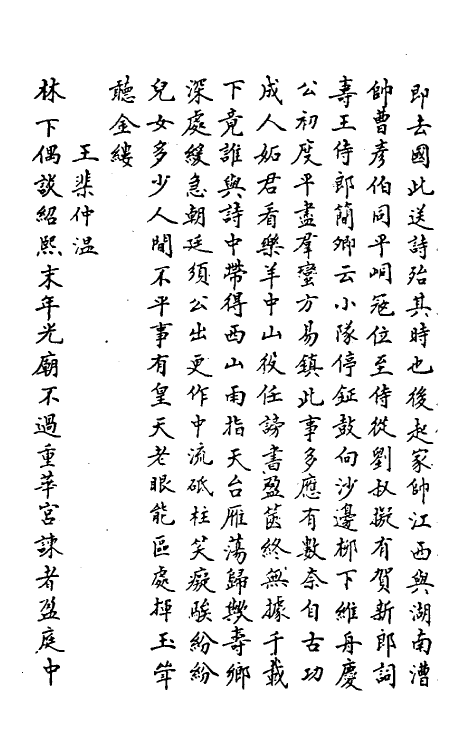 即去國此送詩殆其時也後起家帥江西與湖南漕
帥曹彥伯同平峒寇位至侍從劉叔擬有賀新郎詞
壽王侍郎簡卿云小隊停鉦鼓向沙邊柳下維舟慶
公初度平盡羣蠻方易鎮此事多應有數奈自古功
成人妬君看樂羊中山役任謗書盈篋終無據千載
下竟誰與詩中帶得西山雨指天台雁蕩歸歟壽鄉
深處緩急朝廷須公出更作中流砥柱笑癡騃紛紛
兒女多少人間不平事有皇天老眼能區處揮玉斝
聽金縷
王棐仲温
林下偶談紹熙末年光廟不過重華宮諫者盈庭中